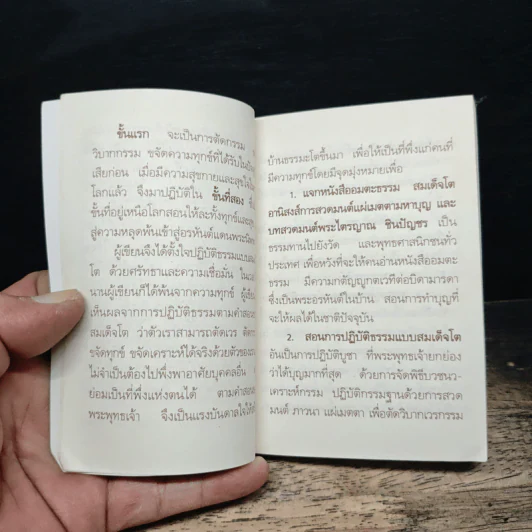 ขั้นแรก จะเป็นการตัดกรรม
วิบากกรรม ขจัดความทุกข์ที่ได้รับใน
เสียก่อน เมื่อมีความสุขกายและสุขใจ
โลกแล้ว จึงมาปฏิบัติใน ขั้นที่สอง
ขั้นที่อยู่เหนือโลกสอนให้ละทั้งทุกข์และ
สู่ความหลุดพ้นเข้าสู่อรหันต์แดนพระนิ
ผู้เขียนจึงได้ตั้งใจปฏิบัติธรรมแบบ
โต ด้วยศรัทธาและความเชื่อมั่น ใน
นานผู้เขียนก็ได้พ้นจากความทุกข์ ผู้เขีย
เห็นผลจากการปฏิบัติธรรมตามคำสอ
สมเด็จโต ว่าตัวเราสามารถตัดเวร ตัด
ขจัดทุกข์ ขจัดเคราะห์ได้จริงด้วยตัวของ
ไม่จำเป็นต้องไปพึ่งพาอาศัยบุคคลอื่น
ย่อมเป็นที่พึ่งแห่งตนได้ ตามคำสอ
พระพุทธเจ้า จึงเป็นแรงบันดาลใจให้
บ้านธรรมะโตขึ้นมา เพื่อให้เป็นที่พึ่งแก่คนที่
มีความทุกข์โดยมีจุดมุ่งหมายเพื่อ
1. แจกหนังสืออมตะธรรม สมเด็จโต
อานิสงส์การสวดมนต์แผ่เมตตามหาบุญ และ
บทสวดมนต์พระไตรญาณ ชินปัญชร เป็น
ธรรมทานไปยังวัด และพุทธศาสนิกชนทั่ว
ประเทศ เพื่อหวังที่จะให้คนอ่านหนังสืออมตะ
ธรรม มีความกตัญญูกตเวทีต่อบิดามารดา
ซึ่งเป็นพระอรหันต์ในบ้าน สอนการทำบุญที่
จะให้ผลได้ในชาติปัจจุบัน
2. สอนการปฏิบัติธรรมแบบสมเด็จโต
อันเป็นการปฏิบัติบูชา ที่พระพุทธเจ้ายกย่อง
ว่าได้บุญมากที่สุด ด้วยการจัดพิธีบวชนว-
เคราะห์กรรม ปฏิบัติกรรมฐานด้วยการสวด
มนต์ ภาวนา แผ่เมตตา เพื่อตัดวิบากเวรกรรม